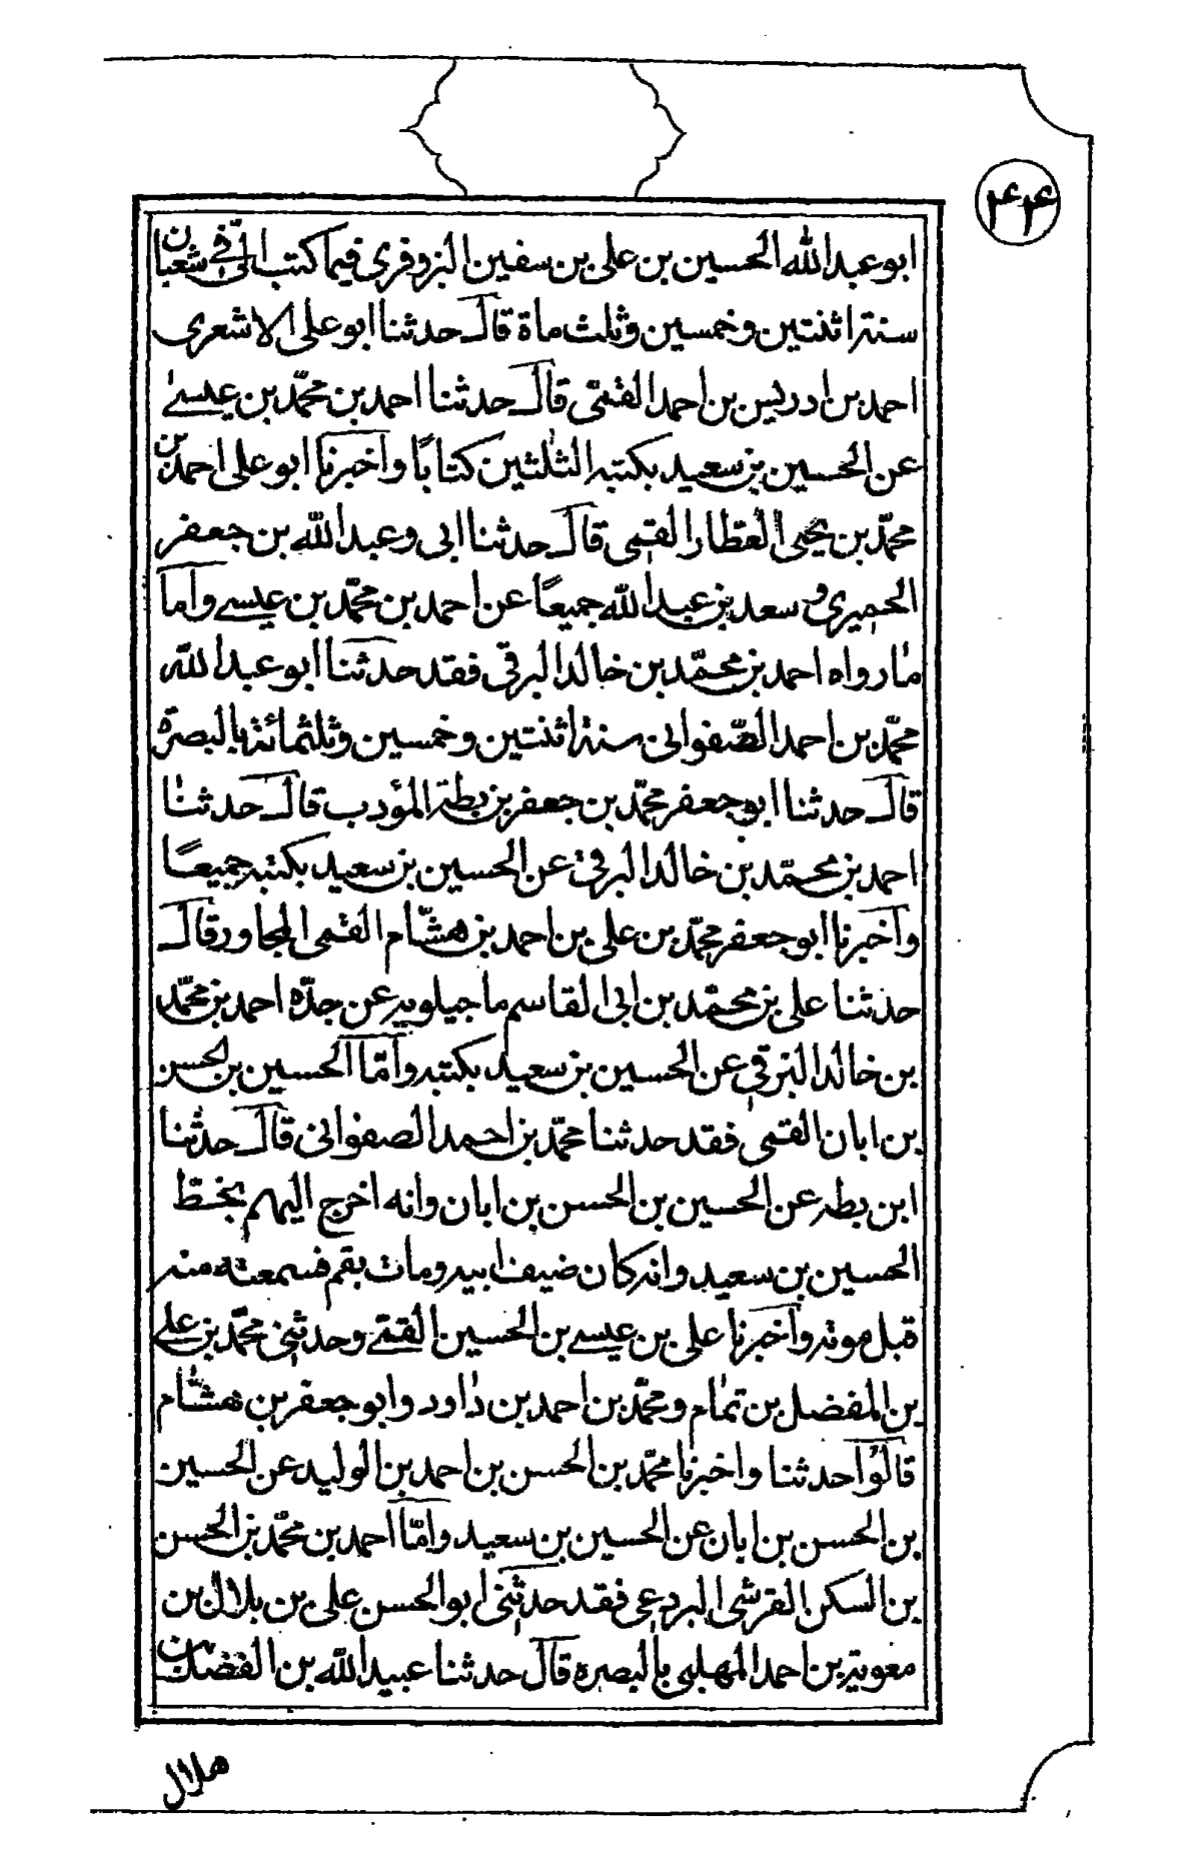 ۴۴
ابو عبد الله الحسين بن على بن سفين البزوفرى فيما كتب الىّ فى شعبان
سنة اثنتين وخمسين وثلث ماة قال حدثنا ابو على الاشعرى
احمد بن ادريس بن احمد القمّى قال حدثنا احمد بن محمّد بن عيسى
عن الحسين بن سعيد بكتبه الثلثين كتابًا واخبرنا ابو على احمد بن
محمّد بن يحيى العطار القمى قال حدثنا ابى وعبد الله بن جعفر
الحميرى و سعد بن عبد الله جميعًا عن احمد بن محمّد بن عيسى وامّا
ما رواه احمد بن محمّد بن خالد البرقى فقد حدثنا ابو عبد الله
محمّد بن احمد الصّفوانى سنة اثنتين وخمسين وثلثمائة بالبصرة
قال حدثنا ابو جعفر محمّد بن جعفر بن بطة المؤدب قال حدثنا
احمد بن محمّد بن خالد البرقى عن الحسين بن سعيد بكتبه جميعًا
واخبرنا ابو جعفر محمّد بن على بن احمد بن هشّام القمى المجاور قال
حدثنا على بن محمّد بن ابى القاسم ماجيلويه عن جدّه احمد بن محمّد
بن خالد البرقى عن الحسين بن سعيد بكتبه وامّا الحسين بن الحسن
بن ابان القمى فقد حدثنا محمّد بن احمد الصفوانى قال حدثنا
ابن بطه عن الحسين بن الحسن بن ابان وانه اخرج اليهم بخطّ
الحسين بن سعيد وانه كان ضيف ابيه ومات بقم فسمعته منه
قبل موته واخبرنا على بن عيسى بن الحسين القمّى وحدثنى محمّد بن على
بن المفضل بن تمام ومحمّد بن احمد بن داود وابو جعفر بن هشّام
قالوا حدثنا واخبرنا محمّد بن الحسن بن احمد بن الوليد عن الحسين
بن الحسن بن ابان عن الحسين بن سعيد وامّا احمد بن محمّد بن الحسن
بن السكن القرشى البردعى فقد حدثنى ابو الحسن على بن بلال بن
معوية بن احمد المهلبى بالبصره قال حدثنا عبيد الله بن الفضل بن
هلال